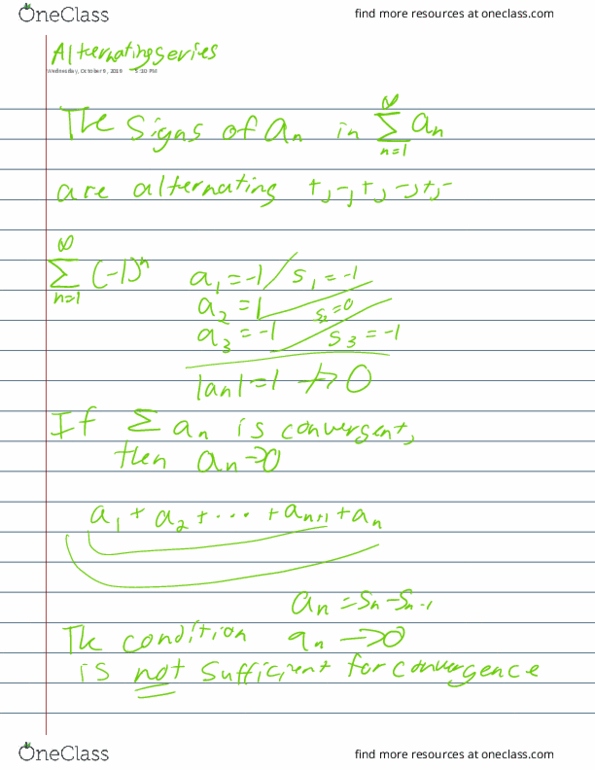 OneClass
find more resources at oneclass.com
Alternating series
Wednesday, October 9, 2019 5:30 PM
The signs of aₙ in ∑ₙ₌₁^∞ aₙ
are alternating +,-,+,-,+,-
∑ₙ₌₁^∞ (-1)ⁿ a₁ = -1 / s₁ = -1
a₂ = 1 s₂ = 0
a₃ = -1 s₃ = -1
|an| = 1 ↛ 0
If ∑ aₙ is convergent,
then aₙ → 0
a₁ + a₂ + ... + aₙ₊₁ + aₙ
aₙ = Sₙ - Sₙ₋₁
The condition aₙ → 0
is not sufficient for convergence
OneClass
find more resources at oneclass.com